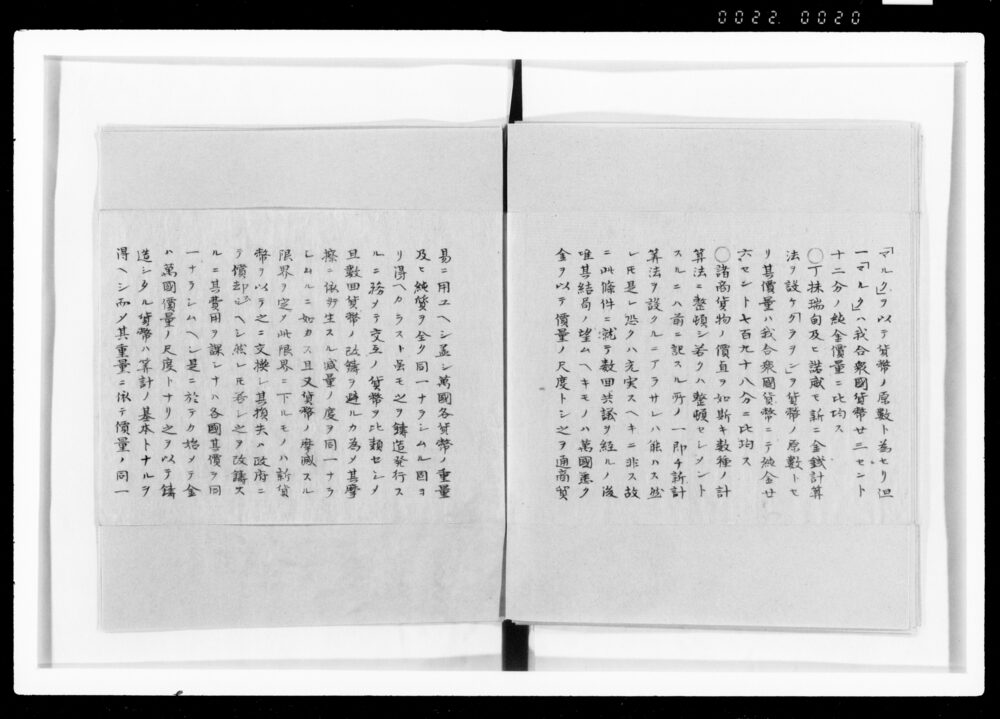 0022 0020
「マルク」ヲ以テ貨幣ノ原数ト為セリ但
一「マルク」ハ我合衆國貨幣廿三セント
十二分ノ純金價量ニ比均ス
○丁抹瑞甸及ヒ諾威モ新ニ金錢計算
法ヲ設ケ「クラヲン」ヲ貨幣ノ原数トセ
リ其價量ハ我合衆國貨幣ニテ純金廿
六セント七百九十八分ニ比均ス
○諸商貨物ノ價直ヲ如斯キ数種ノ計
算法ニ整頓シ若クハ整頓セレメント
スルニハ前ニ記スル所ノ一即チ新計
算法ヲ設クルニアラサレハ能ハス然
レモ是レ恐クハ充実スヘキニ非ス故
ニ此條件ニ就テ数回共議ヲ經ルノ後
唯其結局ノ望ムヘキモノハ萬國悉ク
金ヲ以テ價量ノ尺度トシ之ヲ通商貿
易ニ用ユヘシ盖シ萬國各貨幣ノ重量
及ヒ純質ヲ全ク同一ナラシムル固ヨ
リ得ヘカラスト虽モ之ヲ鋳造発行ス
ルニ務メテ交互ノ貨幣ヲ比類セシメ
且数回貨幣ノ改鋳ヲ避ルカ為メ其摩
擦ニ依リ生スル減量ノ度ヲ同一ナラ
シムルニ如カス且又貨幣ノ摩滅スル
限界ヲ定メ此限界ニ下ルモノハ新貨
幣ヲ以テ之ニ交換シ其損失ハ政府ニ
テ償却スヘシ然レモ若シ之ヲ改鋳ス
ルニ其費用ヲ課シナハ各國其價ヲ同
一ナラシムヘシ是ニ於テカ始メテ金
ハ萬國價量ノ尺度トナリ之ヲ以テ鋳
造シタル貨幣ハ算計ノ基本トナルヲ
得ヘシ而メ其重量ニ依テ價量ノ同一